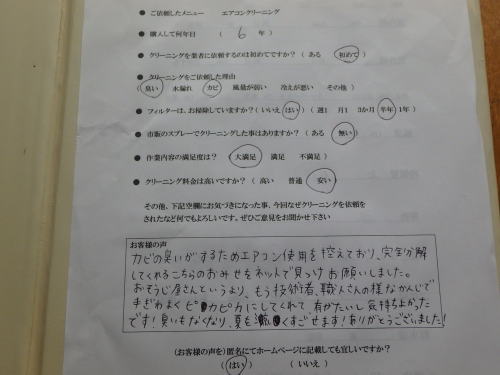 ● ご依頼したメニュー　エアコンクリーニング
● 購入して何年目　（　6　年　）
● クリーニングを業者に依頼するのは初めてですか？（ ある　初めて ）
● クリーニングをご依頼した理由
（ 臭い　水漏れ　カビ　風量が弱い　冷えが悪い　その他　）
● フィルターは、お掃除していますか？（ いいえ　はい ）（ 週1　月1　3か月　半年　1年 ）
● 市販のスプレーでクリーニングした事はありますか？（ ある　無い ）
● 作業内容の満足度は？（ 大満足　満足　不満足 ）
● クリーニング料金は高いですか？（ 高い　普通　安い ）
その他、下記空欄にお気づきになった事、今回なぜクリーニングを依頼を
されたなど何でもよろしいです。ぜひご意見をお聞かせ下さい
お客様の声
カビの臭いがするためエアコン使用を控えており、完全分解
してくれるこちらのおみせをネットで見つけお願いしました。
おそうじ屋さんというより、もう技術者、職人さんの様なかんじで
てぎわよく ピカピカにしてくれて、有がたいし気持ちよかった
です！臭いもなくなり、夏を くすごせます！ありがとうございました！
（お客様の声）匿名にてホームページに記載しても宜しいですか？
（ はい　いいえ ）